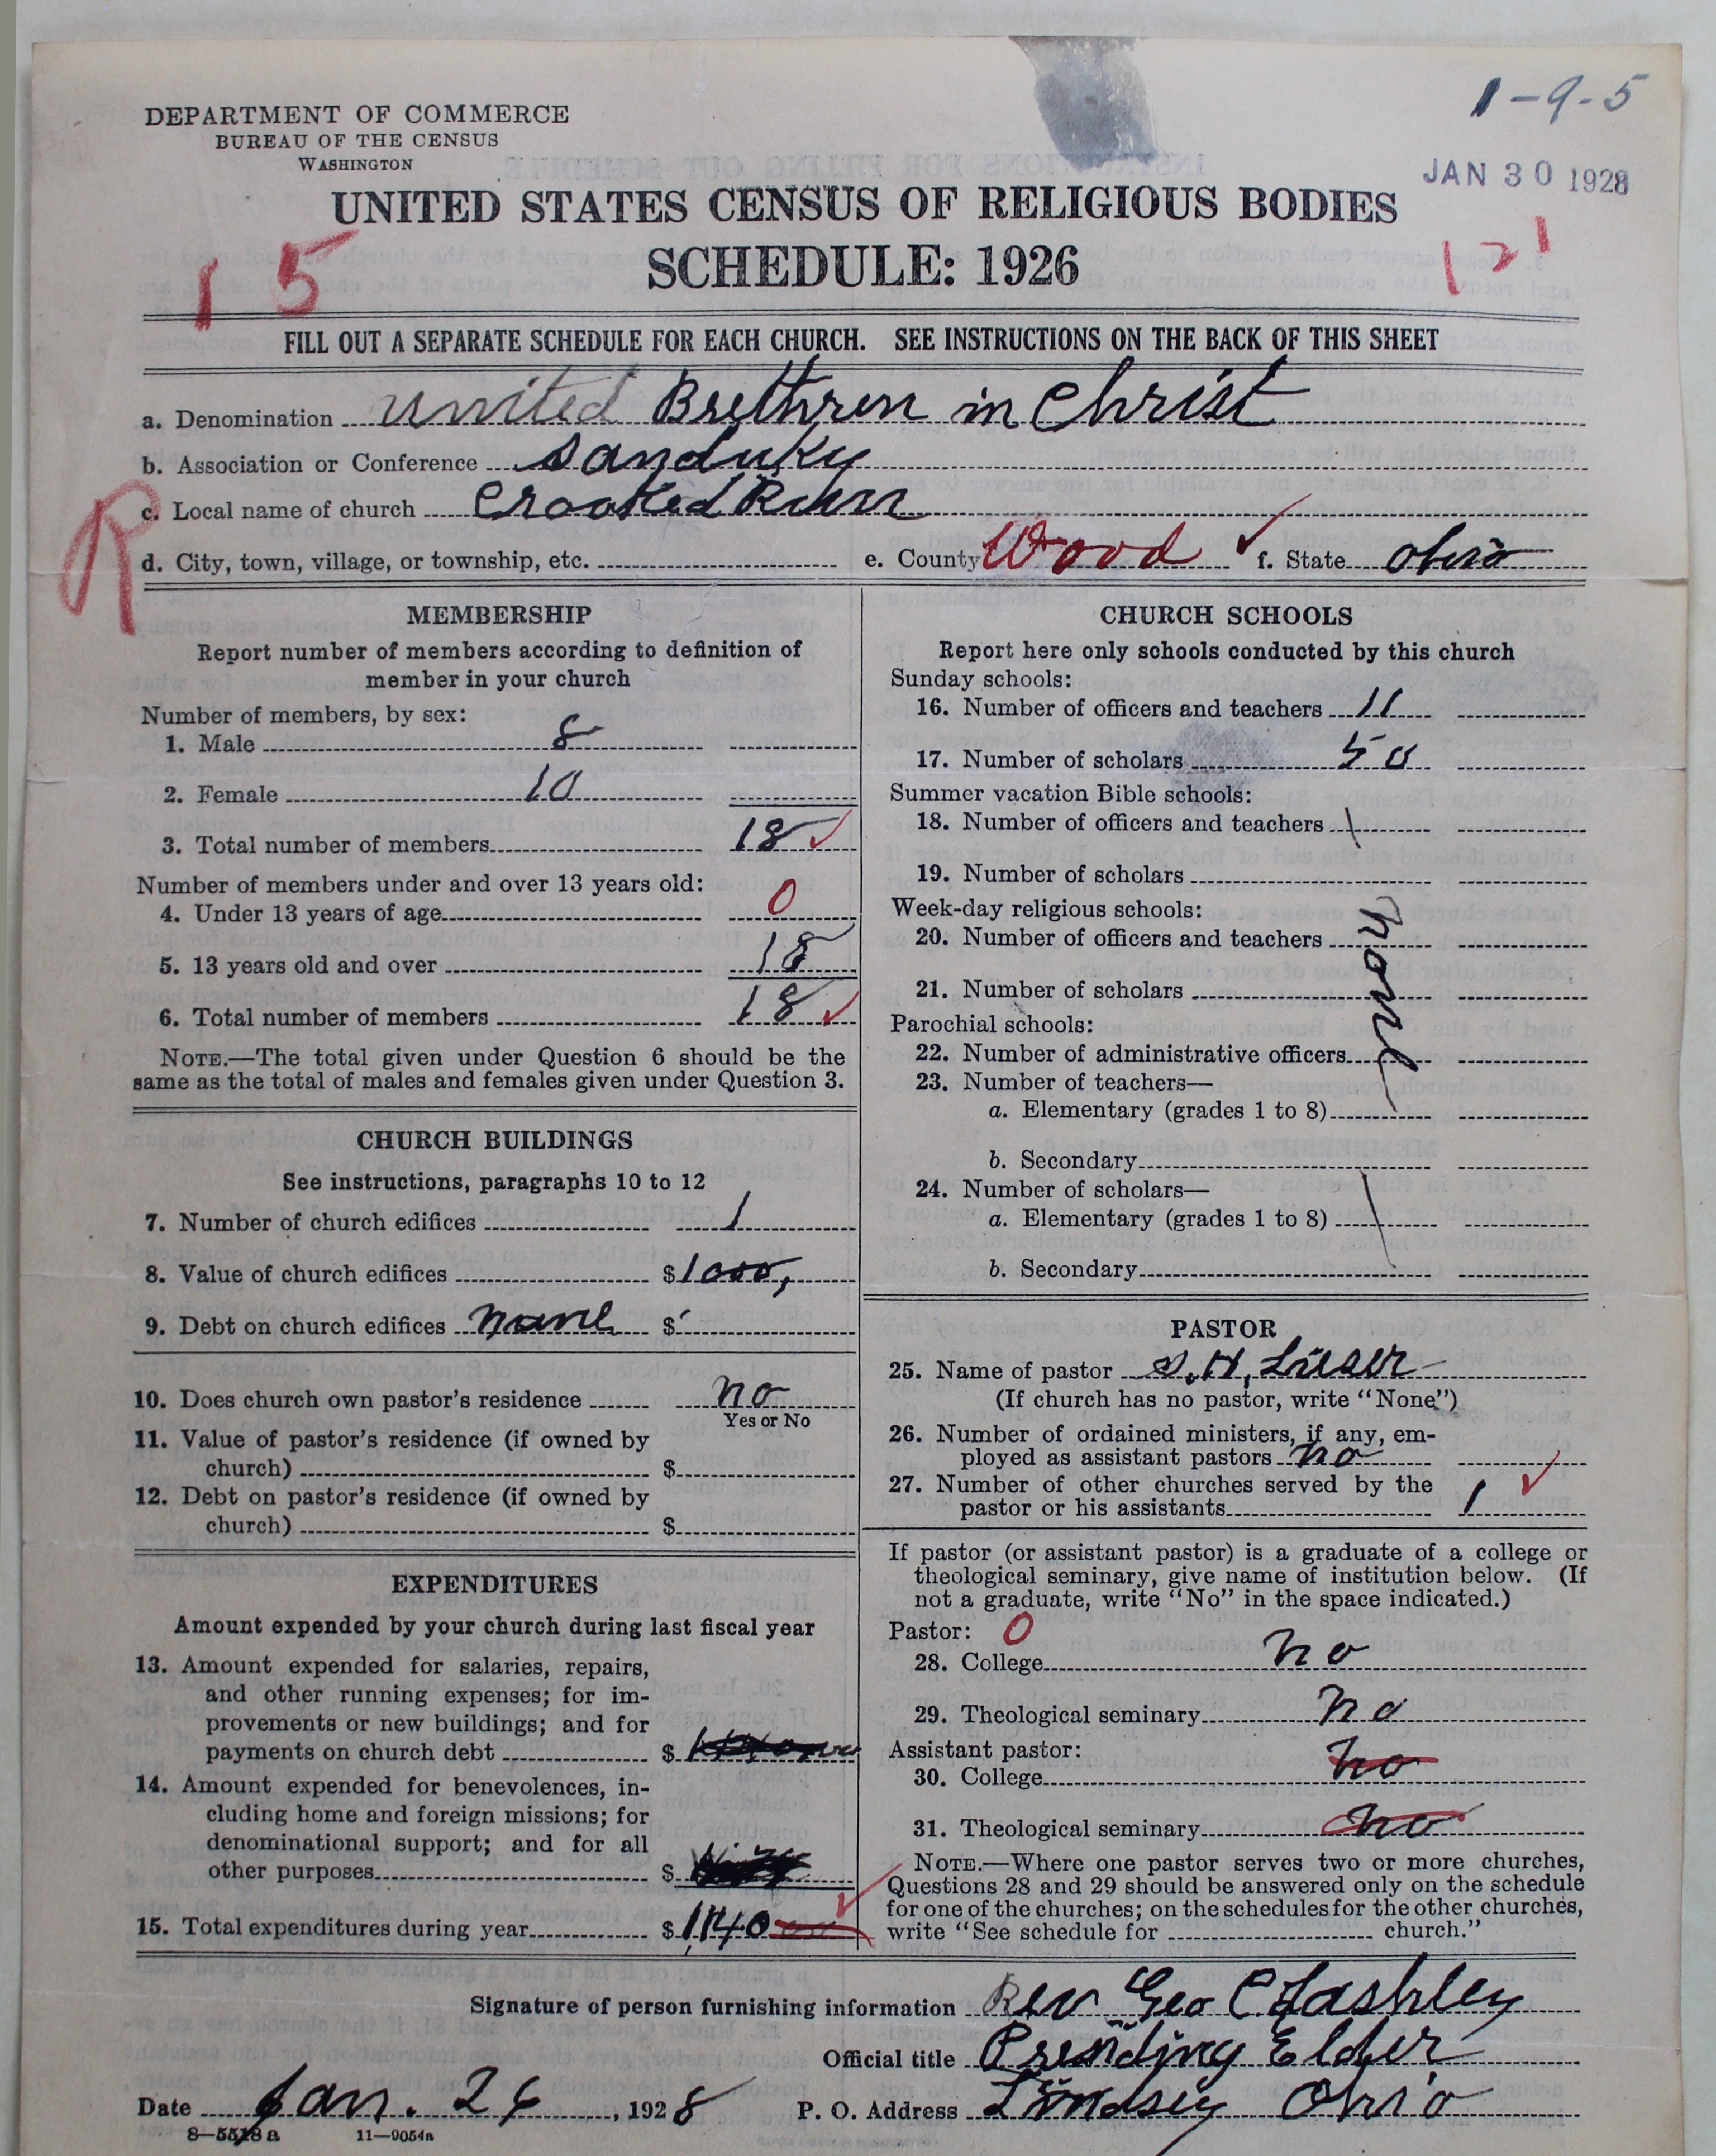 1-9-5
DEPARTMENT OF COMMERCE
BUREAU OF THE CENSUS
WASHINGTON
JAN 30 1928
UNITED STATES CENSUS OF RELIGIOUS BODIES
SCHEDULE: 1926
15
121
FILL OUT A SEPARATE SCHEDULE FOR EACH CHURCH. SEE INSTRUCTIONS ON THE BACK OF THIS SHEET
a. Denomination United Brethren in Christ
b. Association or Conference Sanduky
R
c. Local name of church Crooked Run
d. City, town, village, or township, etc. e. County Wood ✓ f. State Ohio
MEMBERSHIP
Report number of members according to definition of
member in your church
Number of members, by sex:
1. Male 8
2. Female 10
3. Total number of members 18 ✓
Number of members under and over 13 years old:
4. Under 13 years of age 0
5. 13 years old and over 18
6. Total number of members 18 ✓
NOTE.—The total given under Question 6 should be the
same as the total of males and females given under Question 3.
CHURCH BUILDINGS
See instructions, paragraphs 10 to 12
7. Number of church edifices 1
8. Value of church edifices $1000,
9. Debt on church edifices none $
10. Does church own pastor's residence no
Yes or No
11. Value of pastor's residence (if owned by
church) $
12. Debt on pastor's residence (if owned by
church) $
EXPENDITURES
Amount expended by your church during last fiscal year
13. Amount expended for salaries, repairs,
and other running expenses; for im-
provements or new buildings; and for
payments on church debt $
14. Amount expended for benevolences, in-
cluding home and foreign missions; for
denominational support; and for all
other purposes $
15. Total expenditures during year $1,140 ✓
CHURCH SCHOOLS
Report here only schools conducted by this church
Sunday schools:
16. Number of officers and teachers 11
17. Number of scholars 50
Summer vacation Bible schools:
18. Number of officers and teachers
19. Number of scholars
Week-day religious schools:
20. Number of officers and teachers
none
21. Number of scholars
Parochial schools:
22. Number of administrative officers
23. Number of teachers—
a. Elementary (grades 1 to 8)
b. Secondary
24. Number of scholars—
a. Elementary (grades 1 to 8)
b. Secondary
PASTOR
25. Name of pastor S. H.
(If church has no pastor, write "None")
26. Number of ordained ministers, if any, em-
ployed as assistant pastors no
27. Number of other churches served by the
pastor or his assistants 1 ✓
If pastor (or assistant pastor) is a graduate of a college or
theological seminary, give name of institution below. (If
not a graduate, write "No" in the space indicated.)
Pastor: 0
28. College no
29. Theological seminary no
Assistant pastor:
30. College no
31. Theological seminary no
NOTE.—Where one pastor serves two or more churches,
Questions 28 and 29 should be answered only on the schedule
for one of the churches; on the schedules for the other churches,
write "See schedule for church."
Signature of person furnishing information Rev Geo C Lashley
Official title Presiding Elder
Date Jan. 26, 1928 P. O. Address Lindsey Ohio
8—5518 a 11—9054a